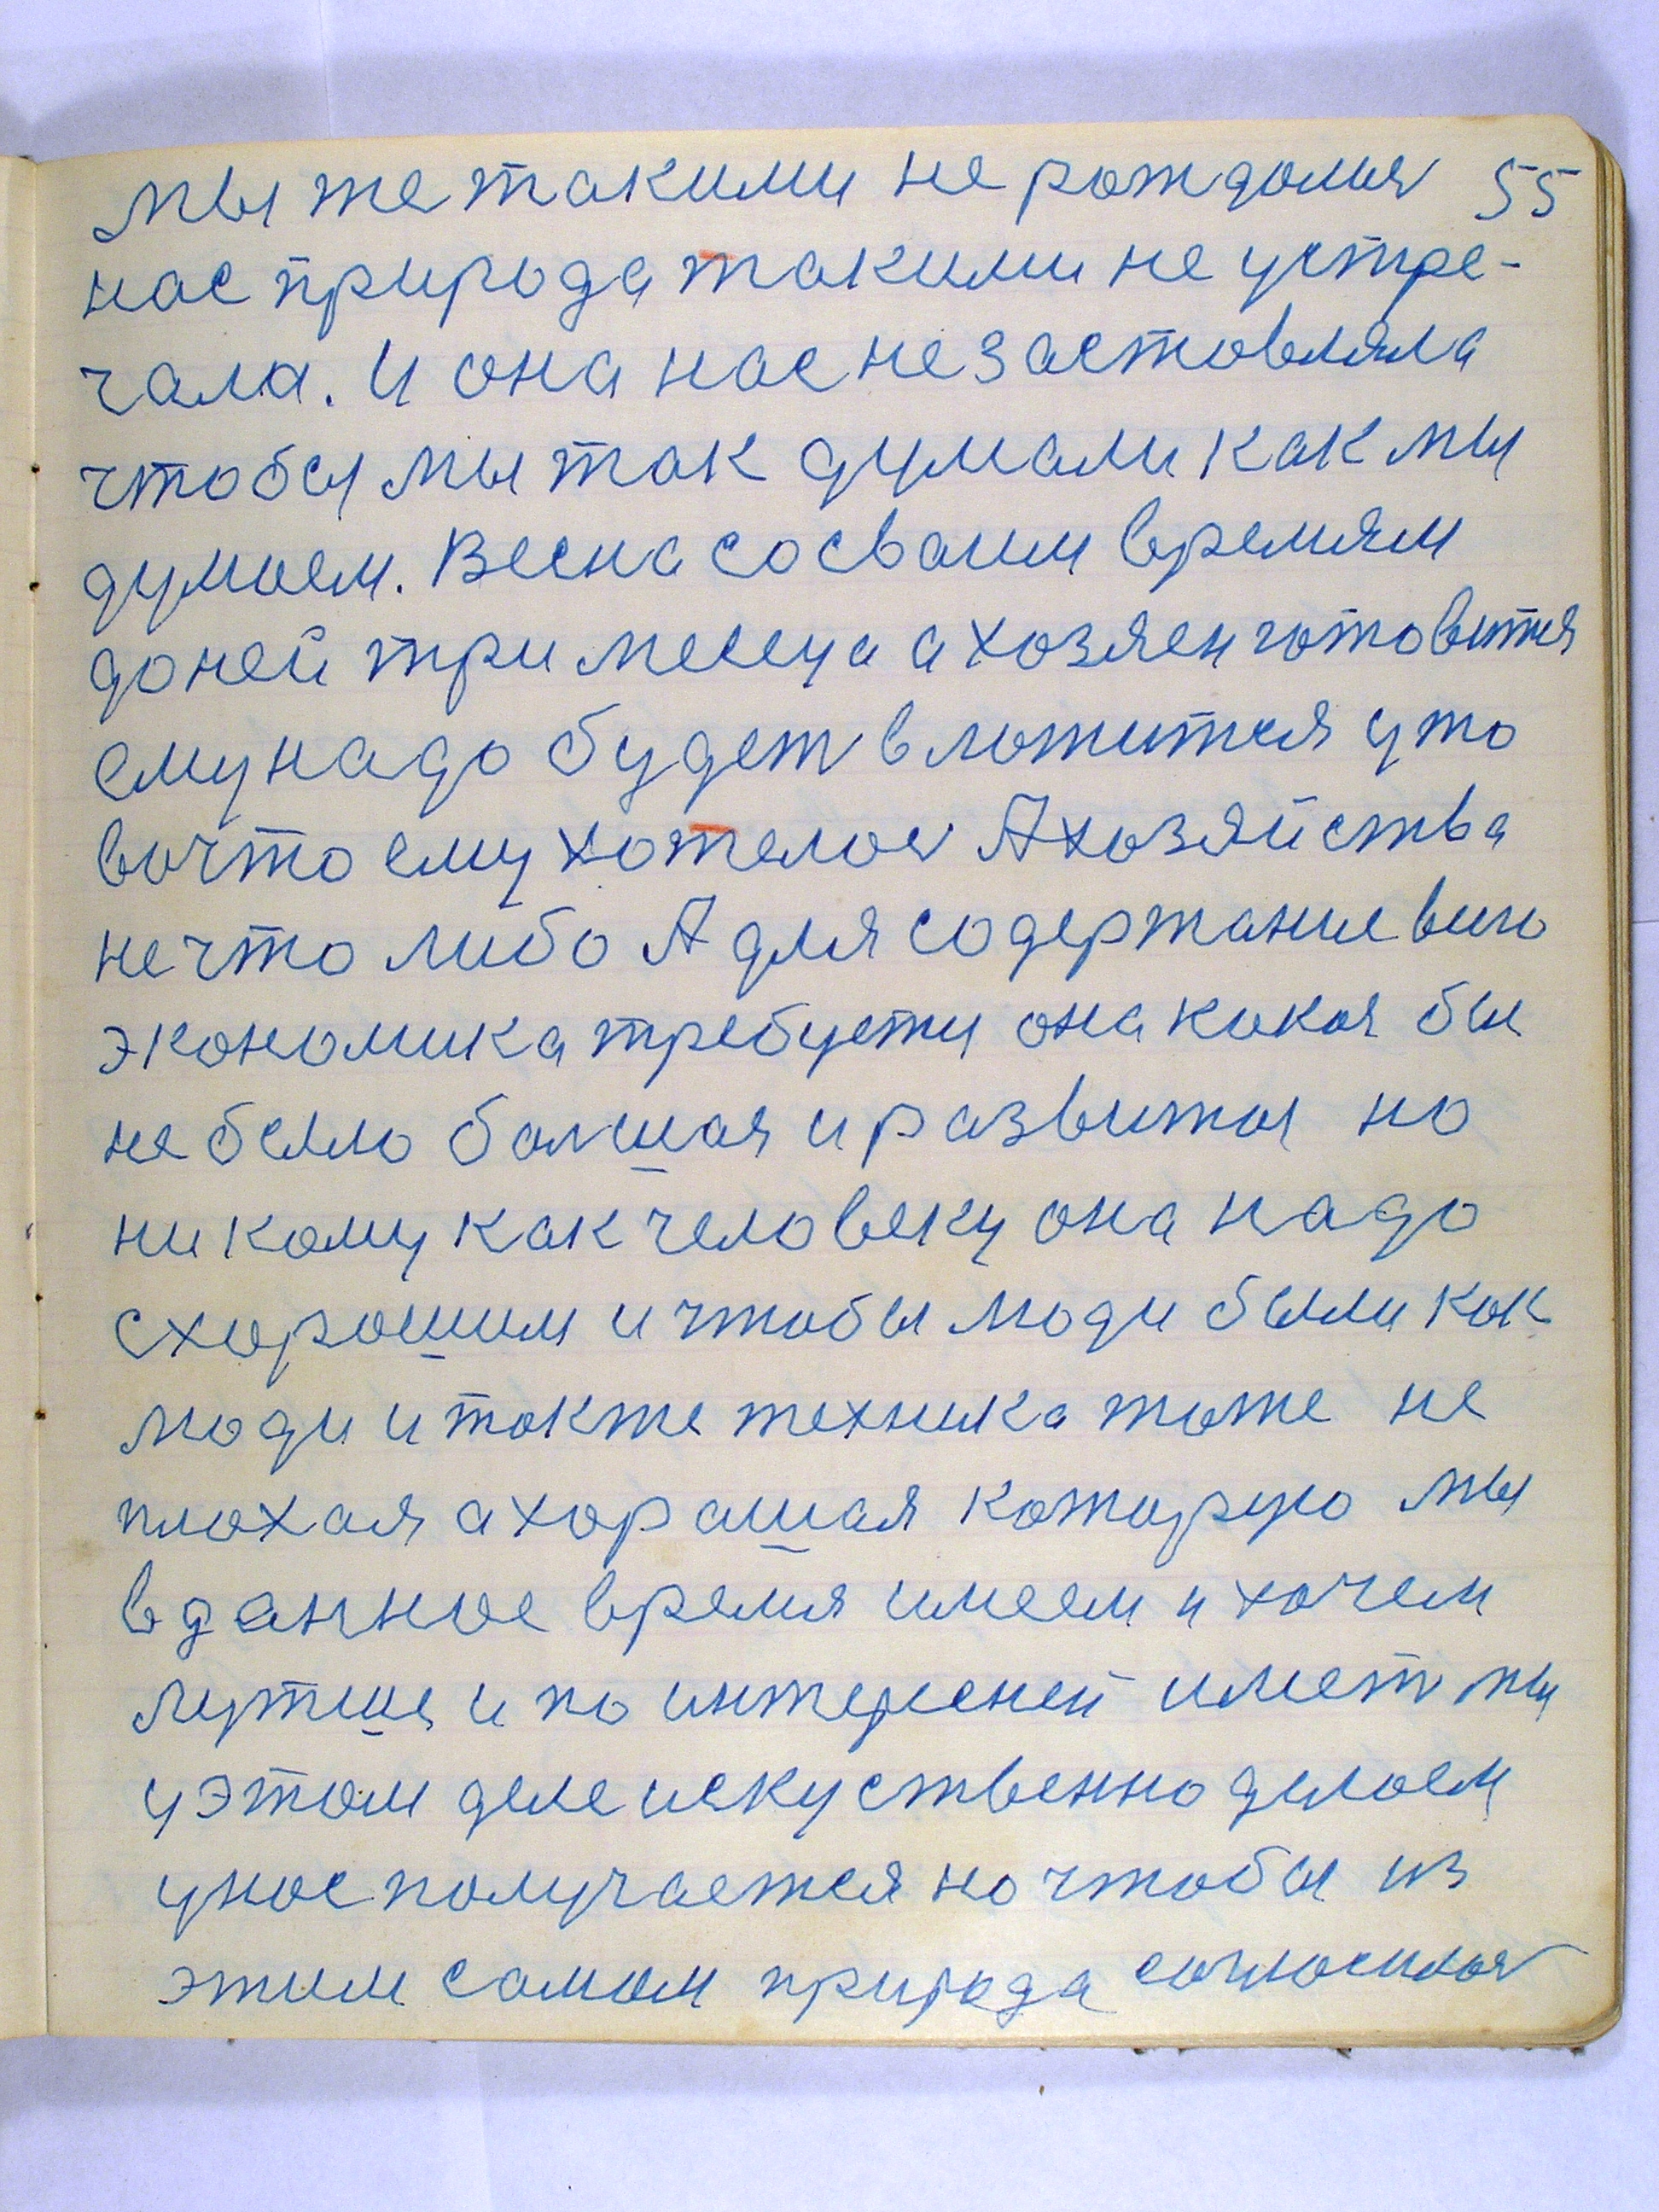 мы же такими не рождались 55
нас природа такими не устре-
чала. И она нас не заставляла
чтобы мы так думали как мы
думаем. Весна со сваим времям
до ней три месеца а хозяен готовится
ему надо будет вложится у то
во что ему хотелось А хозяйства
не что либо А для содержание вшо
экономика требуеты она какая бы
не было болшая и развитоя но
никому как человеку она надо
с хорошим и чтобы люди были как
люди и также техника тоже не
плохая а хорашая которую мы
в данное время имеем и хочем
лутше и по интересней имет мы
у этом деле искуственно делаем
у нас получается но чтобы из
этим самом природа согласилась